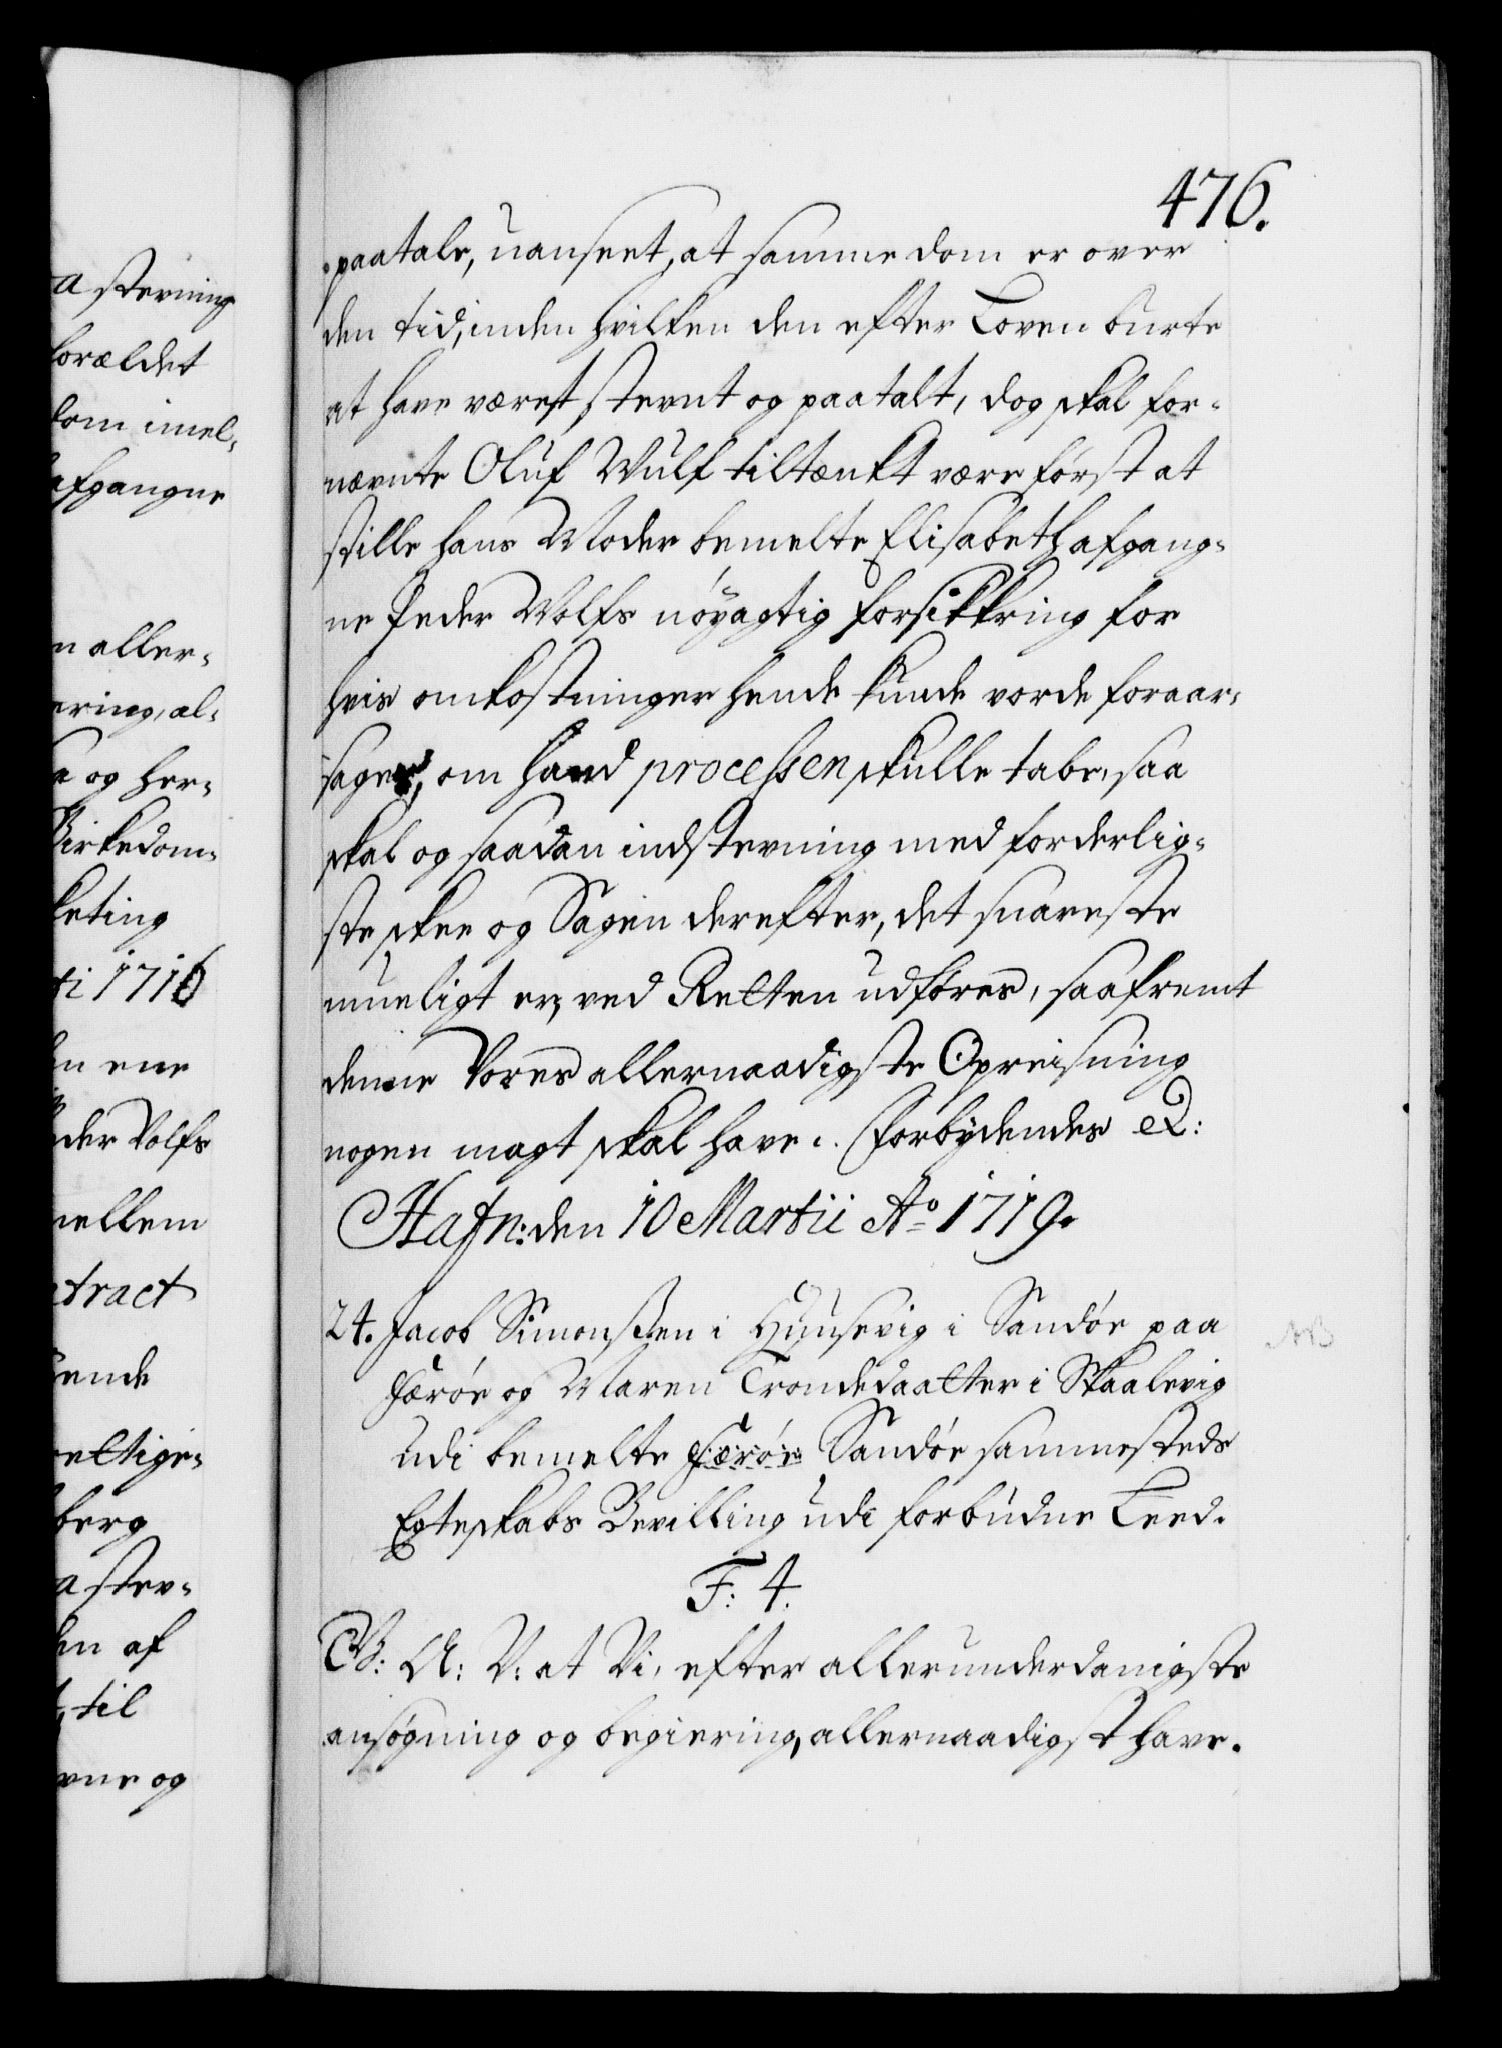 476.
paatale, uanseet, at samme dom er over
den tid, inden hvilken den efter Loven burte
at have været stevnt og paatalt, dog skal for-
nævnte Oluf Wulf tiltænkt være først at
stille hans Moder bemelte Elisabeth afgang-
ne Peder Wolfs nöyagtig forsikkring for
hvis omkostninger hende kunde vorde foraar-
saget, om hand processen skulle tabe, saa
skal og saadan indstevning med forderlig-
ste skee og Sagen derefter, det snareste
mueligt er, ved Retten udføres, saafremt
denne Vores allernaadigste Opreisning
nogen magt skal have. Forbydendes etc:
Hafn: den 10 Martii Ao 1719.
24. Jacob Simonssen i Huusevig i Sandöe paa
Færöe og Maren Trondedaatter i Skaalevig
udi bemelte Færöe Sandöe sammesteds
Egteskabs Bevilling udi forbudne Leed.
F: 4.
G: A: V: at Vi, efter allerunderdanigste
ansøgning og begiering, allernaadigst have.
NB
a stevning
forældet
dom imel-
afgangne
n aller-
ering, al-
a og her-
Birkedom-
keting
ti 1716
en ene
eder Volfs
mellem
tract
ende
rettige-
berg
a stev-
den af
til
vne og